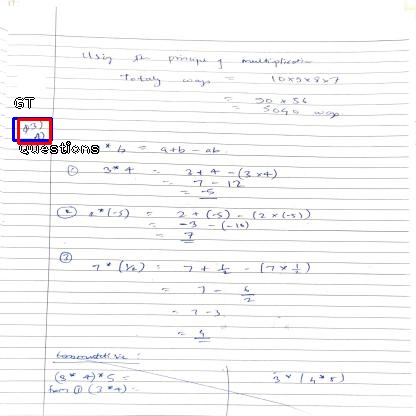 Using the principle of multiplication
Total ways = 10×9×8×7
= 90 × 56
= 5040 ways
GT
Q3)
A)
Questions
* b = a+b - ab
① 3 * 4 = 3 + 4 - (3×4)
= 7 - 12
= -5
② 2 * (-5) = 2 + (-5) - (2 × (-5))
= -3 - (-10)
= 7
③ 7 * (1/2) = 7 + 1/2 - (7 × 1/2)
= 7 - 6/2
= 7 - 3
= 4
Commutative :
(3 * 4) * 5 =
from ① (3 * 4) =
3 * (4 * 5)